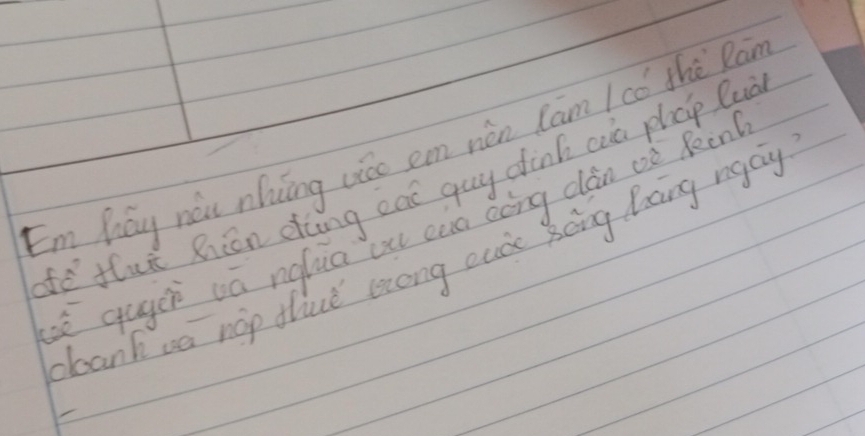 Em hãy nêu những việc em nên làm / có thể làm
để thực hiện đúng các quy định của pháp luật
về quyền và nghĩa vụ của công dân về kinh
doanh và nộp thuế trong cuộc sống hàng ngày?
-